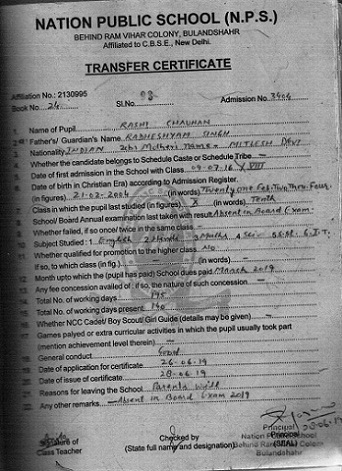 NATION PUBLIC SCHOOL (N.P.S.)
BEHIND RAM VIHAR COLONY, BULANDSHAHR
Affiliated to C.B.S.E., New Delhi.
TRANSFER CERTIFICATE
Affiliation No.: 2130995
Book No. 24 Sl.No. 93 Admission No. 3404
1. Name of Pupil RASHI CHAUHAN
2. Father's/ Guardian's Name RADHESHYAM SINGH
3. Nationality INDIAN Mother's Name - MITLESH DEVI
Whether the candidate belongs to Schedule Caste or Schedule Tribe -
Date of first admission in the School with Class 09-07-16 VIII
Date of birth in Christian Era) according to Admission Register
(in figures) 21-02-2004 (in words) Twenty one Feb. Two Thou. Four
Class in which the pupil last studied (in figures) X (in words) Tenth
School/ Board Annual examination last taken with result Absent in Board Exam
Whether failed, if so once/ twice in the same class -
Subject Studied : 1 English 2 Hindi 3 Maths 4 Sci 5 S.St. 6 I.T.
Whether qualified for promotion to the higher class No
If so, to which class (in fig.) (in words) -
Month upto which the (pupil has paid) School dues paid March 2019
Any fee concession availed of : if so, the nature of such concession -
Total No. of working days 195
Total No. of working days present 140
Whether NCC Cadet/ Boy Scout/ Girl Guide (details may be given) -
Games palyed or extra curricular activities in which the pupil usually took part
(mention achievement level therein) -
General conduct Good
Date of application for certificate 26-06-19
Date of issue of certificate 28-06-19
Reasons for leaving the School Parents Will
Any other remarks Absent in Board Exam 2019
Signature of
Class Teacher
Checked by
(State full name and designation)
Principal
Nation Public School
(SEAL)
Behind Ram Vihar Colony
Bulandshahr